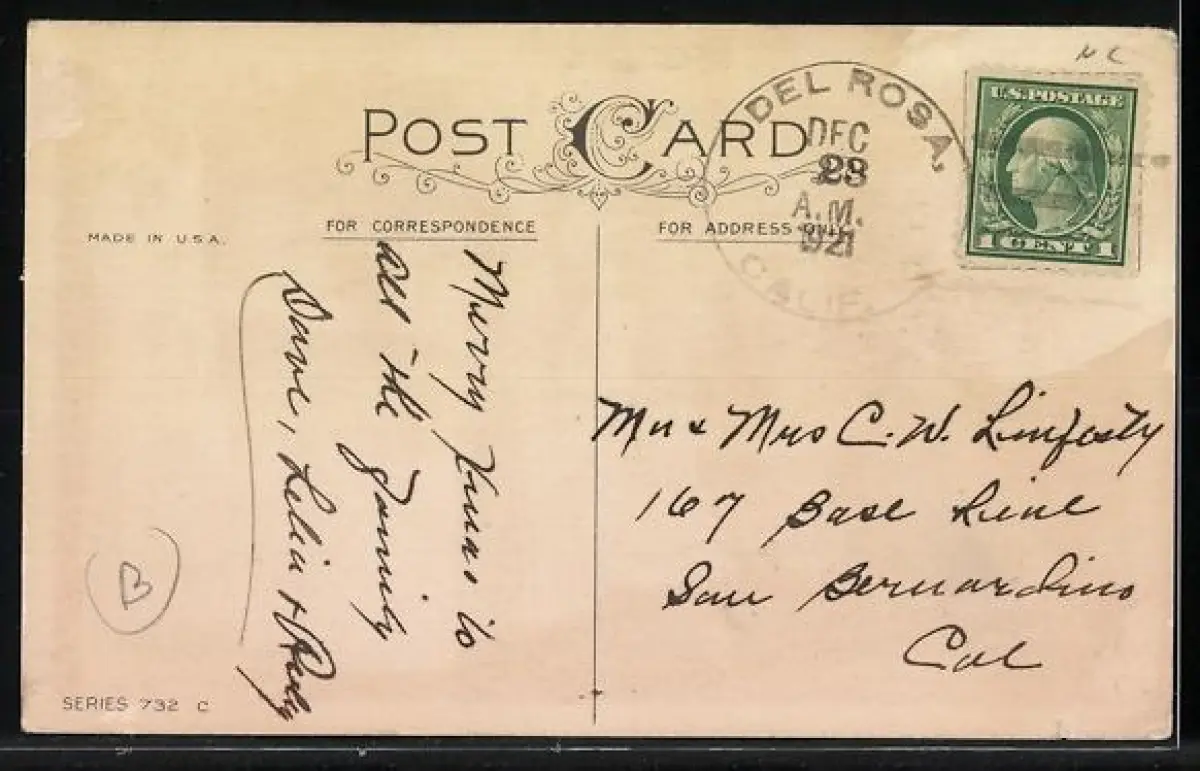 POST CARD
DEL ROSA,
DEC
23
A.M.
1921
CALIF.
U.S. POSTAGE
1 CENT 1
MADE IN U.S.A.
FOR CORRESPONDENCE
FOR ADDRESS ONLY
Merry Xmas to
all the family
Dave, Lelia &
Mr & Mrs C. W.
167 Base Line
San Bernardino
Cal
B
SERIES 732 C